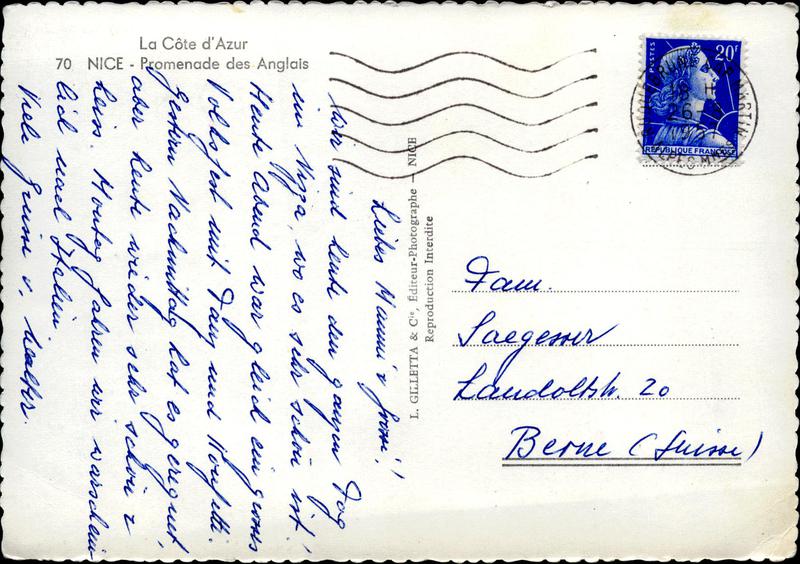 La Côte d'Azur
70 NICE - Promenade des Anglais
Liebes Mammi & Grossi!
Wir sind heute den ganzen Tag
in Nizza, wo es sehr schön ist!
Heute Abend war gleich ein grosses
Volksfest mit Tanz und Konfetti.
Gestern Nachmittag hat es geregnet,
aber heute wieder sehr schön &
heiss. Montag fahren wir warschein-
lich nach Italien
Viele Grüsse v. Walter.
L. GILLETTA & Cie, Éditeur-Photographe - NICE
Reproduction Interdite
POSTES
20f
RÉPUBLIQUE FRANÇAISE
Fam.
Saegesser
Landoltstr. 20
Berne (Suisse)